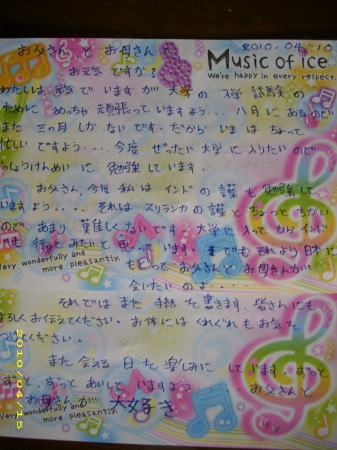 2010.04.10
お父さんとお母さん
Music of ice
We're happy in every respect.
お元気ですか?
わたしは元気でいますが大学の入学試験の
ために めっちゃ頑張っていますよう... 八月にあるので
また 三ヵ月しかないです。だから いまは ちょって
忙しいですよう... 今度 ぜったい大学に入りたいので
いっしょうけんめいに 勉強しています。
お父さん、今度 私は インドの 語も勉強して
いますよう... それは スリランカの 語と ちょっと ちがい
ので あまり 難しくないです。大学に入ってから インド
も 行ってみたいと 思っています。でも それより 日本に
Very wonderfully and
more pleasantly.
もどって お父さんと お母さんが
会いたいのよ...
それでは また 手紙を書きます。皆さんにも
よろしくお伝えてください。お体には くれぐれもお気を
つけてください。
また会える 日を 楽しみに しています。ずっと
ずっと、ずっと あいしていますよう お父さんと
お母さんが 大好き
Very wonderfully and
more pleasantly.
2010/04/15